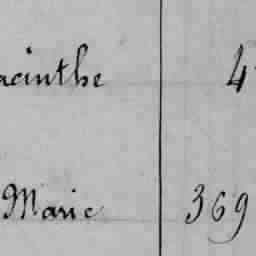 acinthe 4
Marie 369